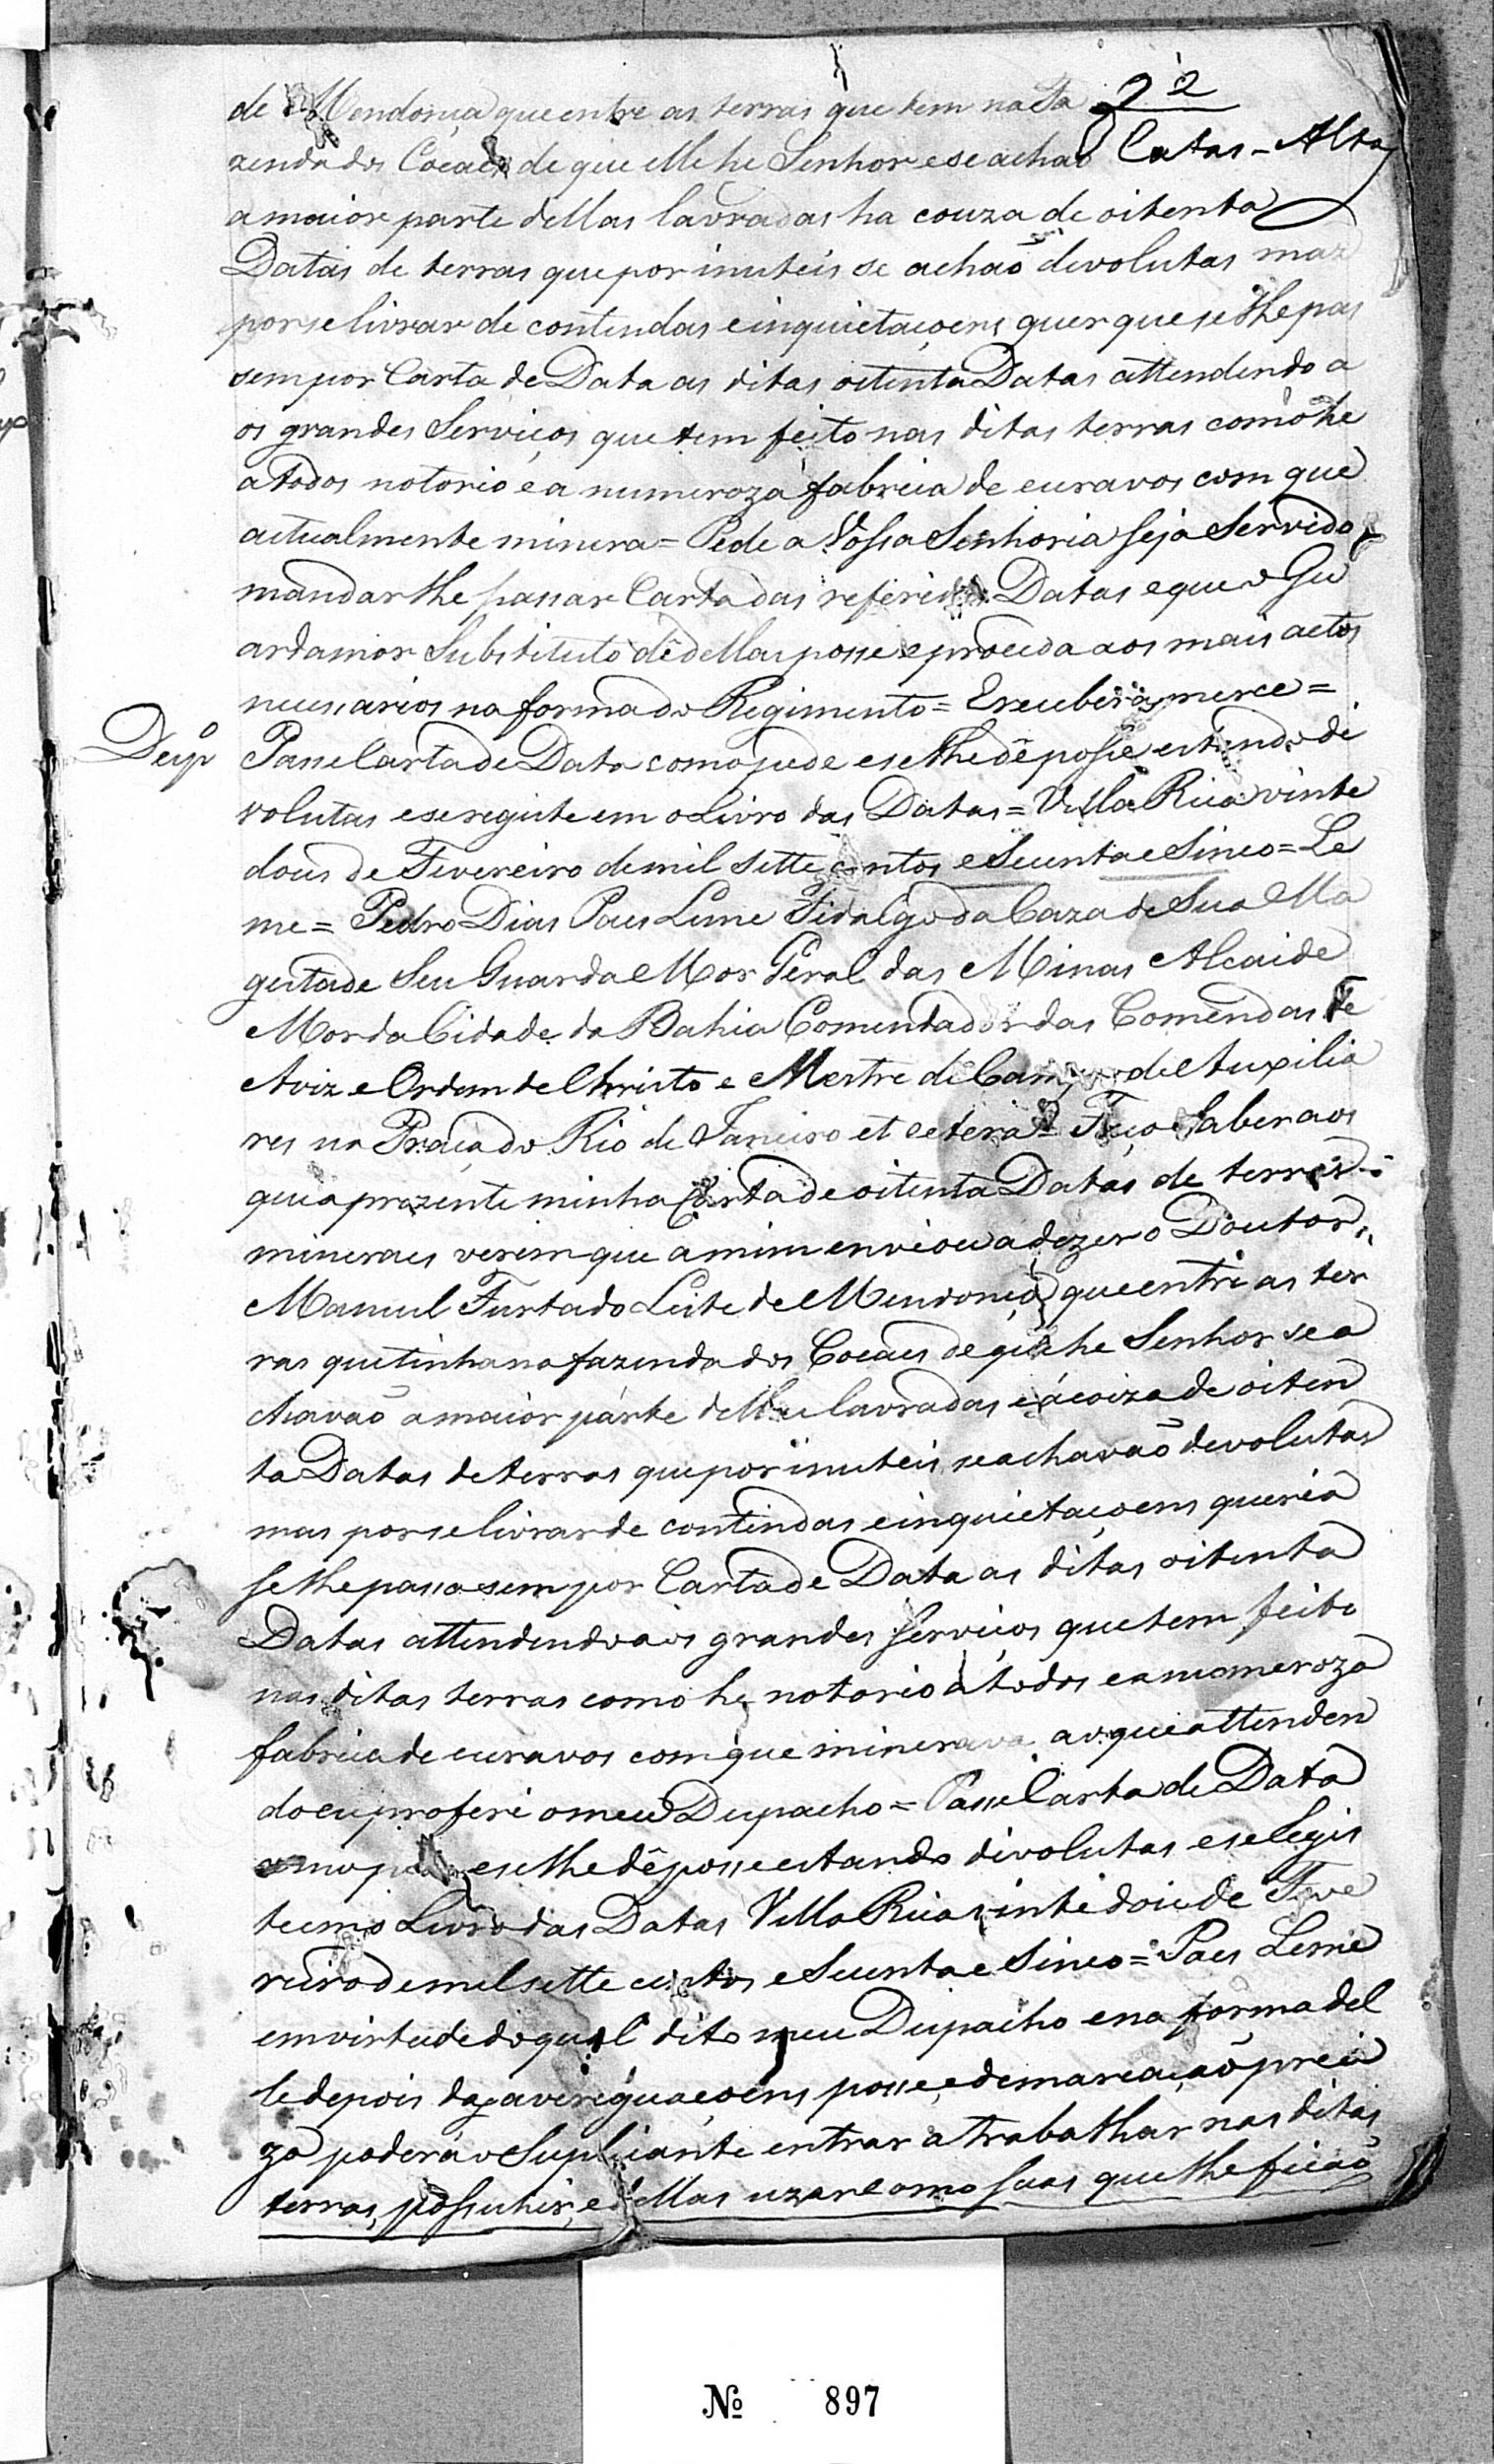 22
Catas-Altas
de Mendonça que entre as terras que tem na Fa
zenda dos Cocaes de que elle he Senhor e se achaõ
a maior parte dellas lavradas ha couza de oitenta
Datas de terras que por inuteis se achaõ devolutas maz
por se livrar de contendas e inquietaçoens quer que se lhe pas
sem por Carta de Data as ditas oitenta Datas attendendo a
os grandes Serviços que tem feito nas ditas terras como he
a todos notorio e a numeroza fabrica de escravos com que
actualmente minera = Pede a Vossa Senhoria seja Servido
mandar lhe passar Carta das referidas Datas e que o Gu
ardamor Substituto dê dellas posse e proceda aos mais actos
necessarios na forma do Regimento = E receberá merce =
Desp.º
Passe Carta de Data como pede e se lhe dê posse estando de
volutas e se registe em o Livro das Datas = Villa Rica vinte
dous de Fevereiro de mil sette centos e Secenta e Sinco = Le
me = Pedro Dias Paes Leme Fidalgo da Caza de Sua Ma
gestade Seu Guarda Mor Geral das Minas Alcaide
Mor da Cidade da Bahia Comendador das Comendas de
Aviz e Ordem de Christo e Mestre de Campo de Auxilia
res na Praça do Rio de Janeiro et cetera = Faço Saber aos
que a prezente minha Carta de oitenta Datas de terras
mineraes verem que a mim enviou a dizer o Doutor
Manuel Furtado Leite de Mendonça que entre as ter
ras que tinha na fazenda dos Cocaes de que he Senhor se a
chavaõ a maior parte dellas lavradas e á coiza de oiten
ta Datas de terras que por inuteis se achavaõ devolutas
mas por se livrar de contendas e inquietaçoens queria
se lhe passasem por Carta de Data as ditas oitenta
Datas attendendo aos grandes Serviços que tem feito
nas ditas terras como he notorio a todos e a numeroza
fabrica de escravos com que minerava ao que attenden
do eu proferi o meu Despacho = Passe Carta de Data
como pede e se lhe dê posse estando divolutas e se Regis
te em o Livro das Datas Villa Rica vinte dois de Feve
reiro de mil sette centos e Secenta e Sinco = Paes Leme
em virtude do qual dito meu Despacho e na forma del
le depois das averiguaçoens posse e demarcaçaõ preci
za poderá o Supliciante entrar a trabalhar nas ditas
terras, possuhir, e dellas uzar como suas que lhe ficaõ
Nº 897